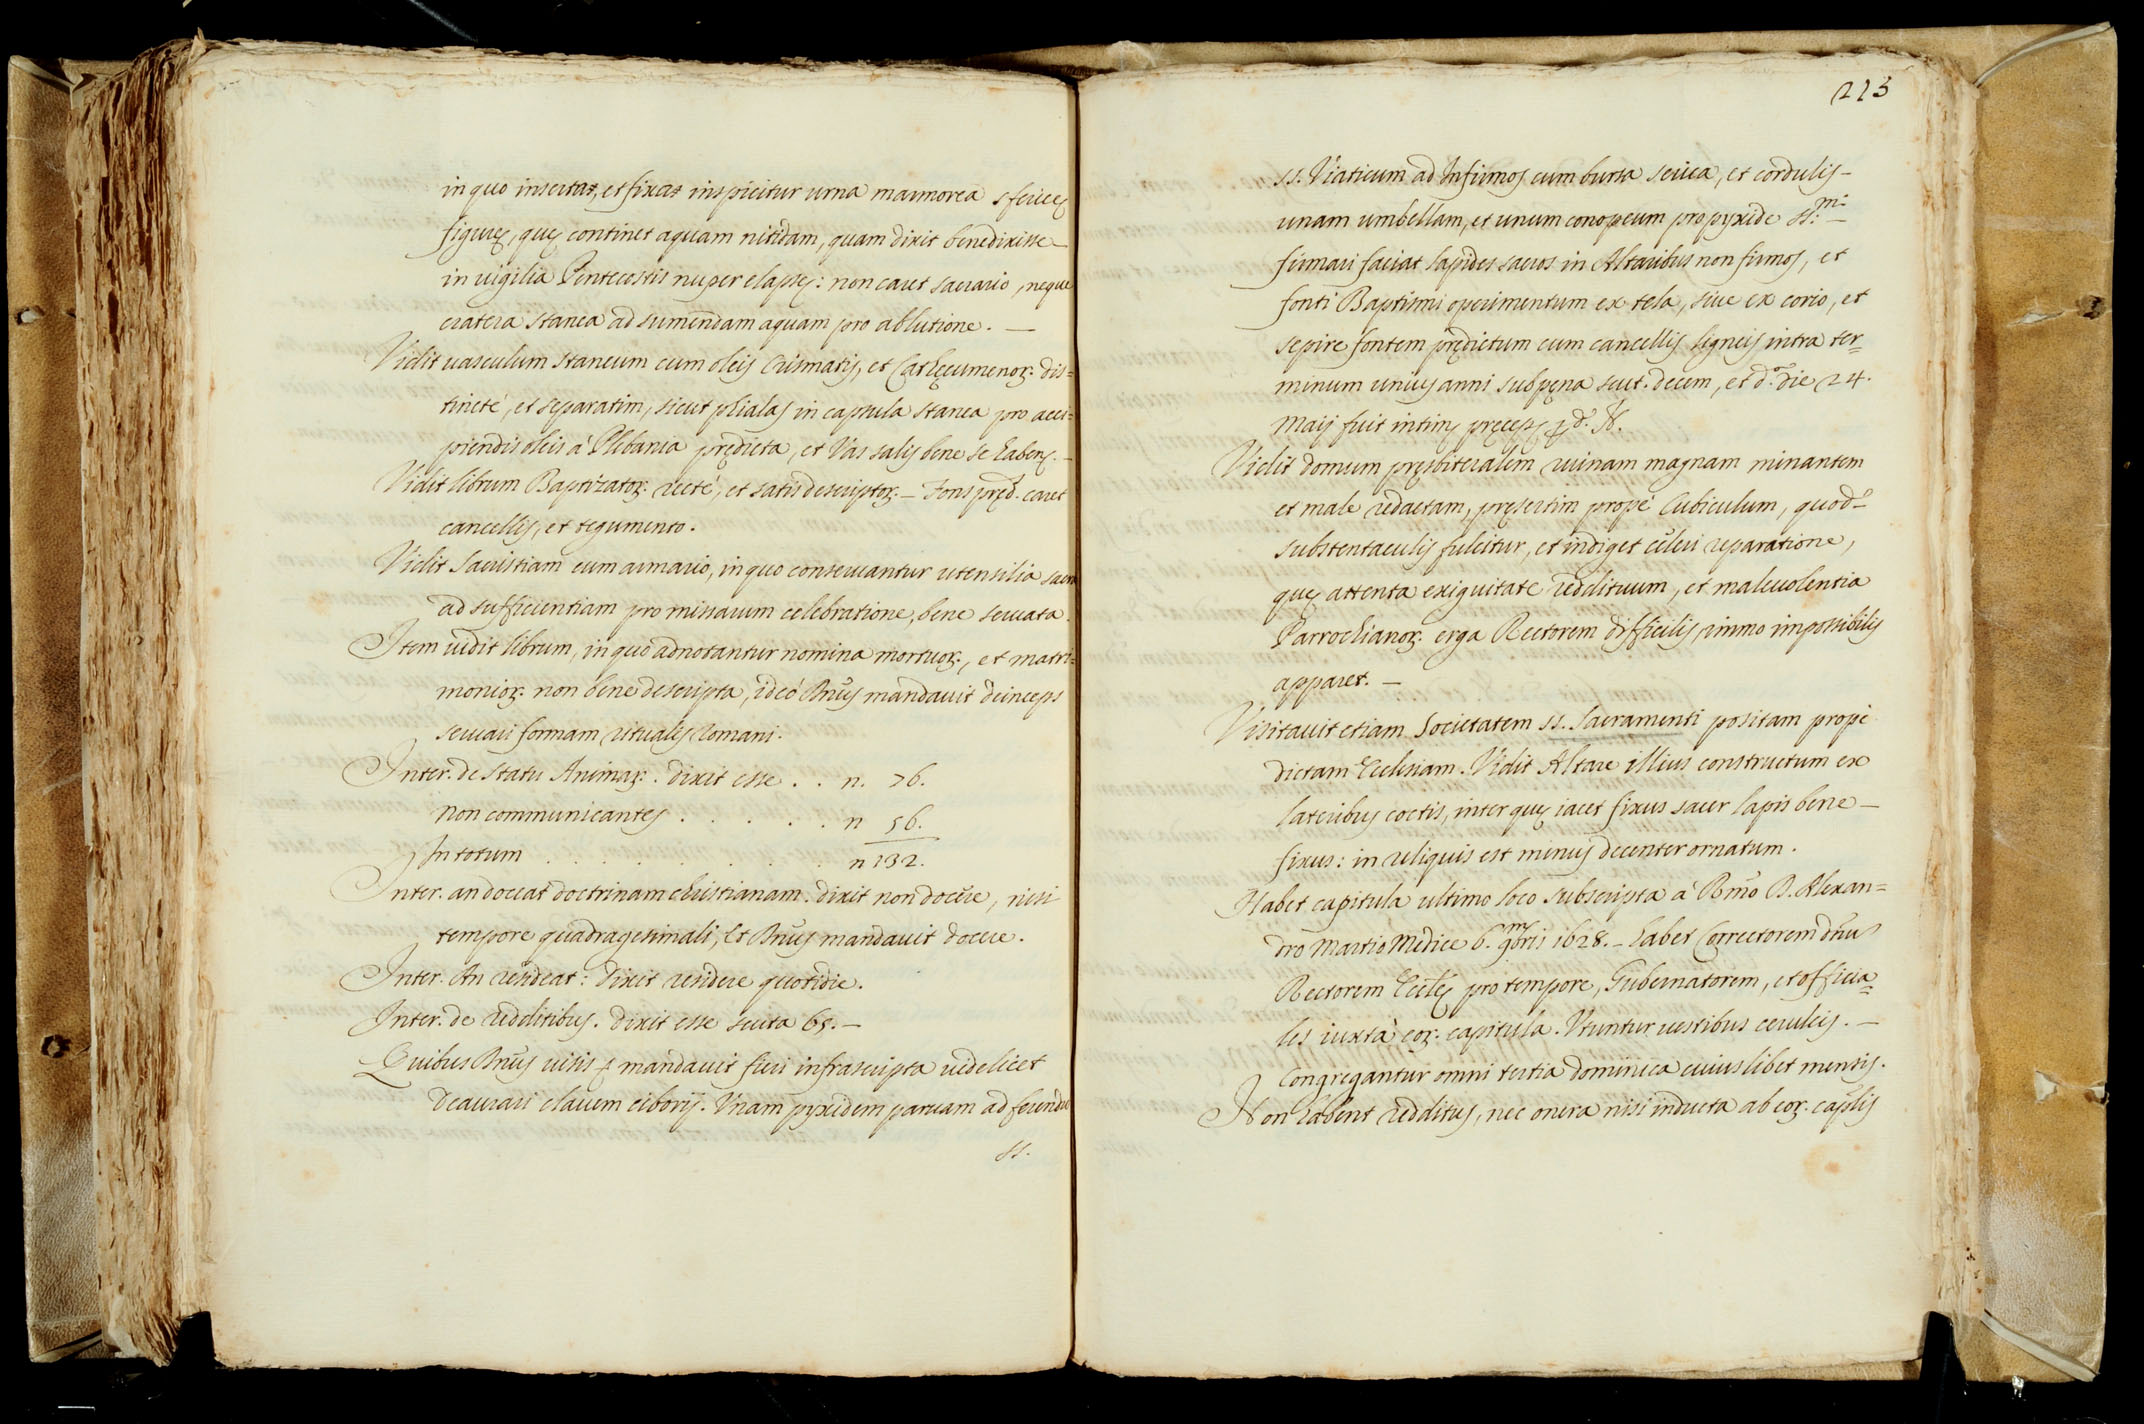 in quo insertaz, et fixaz inspicitur urna marmorea sfericę
figurę, quę continet aquam nitidam, quam dixit benedixisse
in uigilia Pentecostis nuper elapsę: non caret sacrario, neque
cratera stanea ad sumendam aquam pro ablutione. —
Vidit uasculum staneum cum oleis Crismatis, et Cathęcumenoꝝ: dis=
tincté, et separatim, sicut phialas in capsula stanea pro acci=
piendis oleis á Plebania prędicta, et Vas salis bene se habens. —
Vidit librum Baptizatoꝝ. recté, et satis descriptoꝝ. — Fons pręd. caret
cancellis, et tegumento.
Vidit Sacristiam cum armario, in quo conseruantur utensilia sacra
ad sufficientiam pro missarum celebratione, bene seruata.
Item uidit librum, in quo adnotantur nomina mortuoꝝ., et matri=
monioꝝ. non bene descripta, ideó Rm̃us mandauit deinceps
seruari formam ritualis Romani.
Inter. de statu Animaꝝ. dixit esse . . n. 76.
non communicantes . . . . . . n 56.
In totum . . . . . . . . . . n 132.
Inter. an doceat doctrinam christianam. dixit non docere, nisi
tempore quadragesimali, Et Rm̃us mandauit docere.
Inter. An resideat: dixit residere quotidie.
Inter. de redditibus. dixit esse scuta 65. —
Quibus Rm̃us uisis mandauit fieri infrascripta uidelicet
deaurari clauem ciborij. Vnam pyxidem paruam ad ferendū
ss.
213
ss. Viaticum ad Infirmos cum bursa serica, et cordulis —
unam umbellam, et unum conopeum pro pyxide ss.mi —
firmari faciat lapides sacros in Altaribus non firmos, et
fonti Baptismi operimentum ex tela, siue ex corio, et
sepire fontem prędictum cum cancellis ligneis intra ter=
minum unius anni sub pęna scut. decem, et d.o die 24.
Maij fuit intim. pręcep.
Vidit domum pręsbiteralem ruinam magnam minantem
et male redactam, pręsertim propé Cubiculum, quod —
substentaculis fulcitur, et indiget celeri reparatione,
quę attenta exiguitate reddituum, et maleuolentia
Parrochianoꝝ. erga Rectorem difficilis, immo impossibilis
apparet. —
Visitauit etiam Societatem ss. Sacramenti positam propé
dictam Ecclesiam. Vidit Altare illius constructum ex
lateribus coctis, inter quę iacet fixus sacer lapis bene —
fixus: in reliquis est minus decenter ornatum.
Habet capitula ultimo loco subscripta á Rm̃o D. Alexan=
dro Martio Medice 6. 9mbris 1628. — habet Correctorem dn̄um
Rectorem Eccl̃ę pro tempore, Gubernatorem, et officia=
les iuxtà eoꝝ. capitula. Vtuntur uestibus ceruleis. —
Congregantur omni tertia dominica cuius libet mensis.
Non habent redditus, nec onera nisi inducta ab eoꝝ. cap̃lis